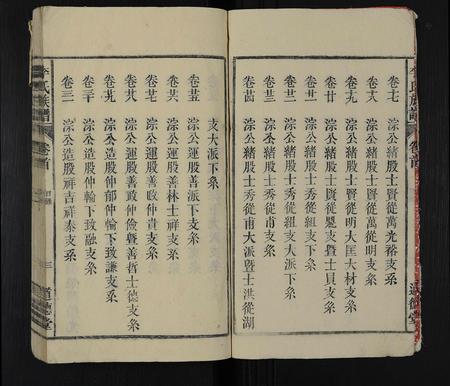 李氏族譜 卷首
卷十七 淙公緒股士賢從萬光裕支系
卷十八 淙公緒股士賢從萬從明支系
卷十九 淙公緒股士賢從明大匡大材支系
卷廿 淙公緒股士賢從夔支暨士貝支系
卷廿一 淙公緒股士秀從組支下系
卷廿二 淙公緒股士秀從組支大派下系
卷廿三 淙公緒股士秀從甫支系
卷廿四 淙公緒股士秀從甫大派暨士洪從湖
支大派下系
卷廿五 淙公運股善派支系
卷廿六 淙公運股善林士祥支系
卷廿七 淙公運股善政仲貴支系
卷廿八 淙公運股善政仲儉暨善哲士德支系
卷廿九 淙公造股仲郁仲愉下致謙支系
卷三十 淙公造股仲愉下致融支系
卷三一 淙公造股祥吉祥泰支系
李氏族譜 卷首 三 道德堂